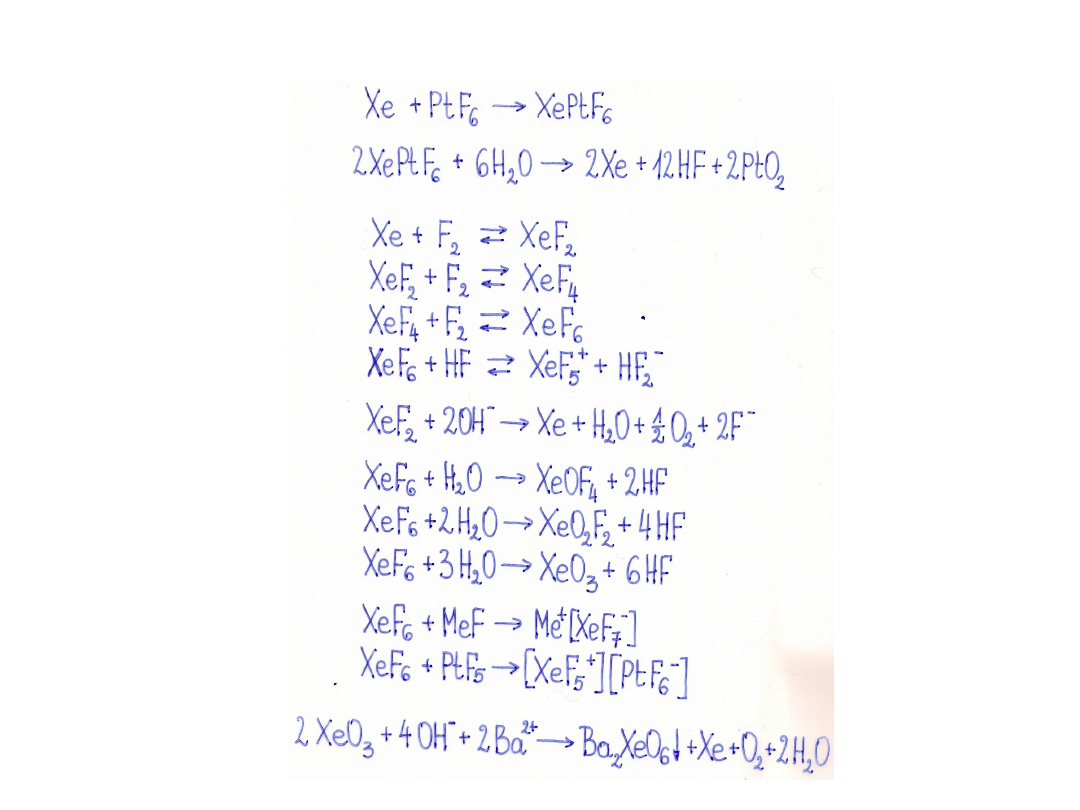 Xe + PtF₆ → XePtF₆
2XePtF₆ + 6H₂O → 2Xe + 12HF + 2PtO₂
Xe + F₂ ⇄ XeF₂
XeF₂ + F₂ ⇄ XeF₄
XeF₄ + F₂ ⇄ XeF₆
XeF₆ + HF ⇄ XeF₅⁺ + HF₂⁻
XeF₂ + 2OH⁻ → Xe + H₂O + ½O₂ + 2F⁻
XeF₆ + H₂O → XeOF₄ + 2HF
XeF₆ + 2H₂O → XeO₂F₂ + 4HF
XeF₆ + 3H₂O → XeO₃ + 6HF
XeF₆ + MeF → Me⁺[XeF₇⁻]
XeF₆ + PtF₅ → [XeF₅⁺][PtF₆⁻]
2XeO₃ + 4OH⁻ + 2Ba²⁺ → Ba₂XeO₆↓ + Xe + O₂ + 2H₂O